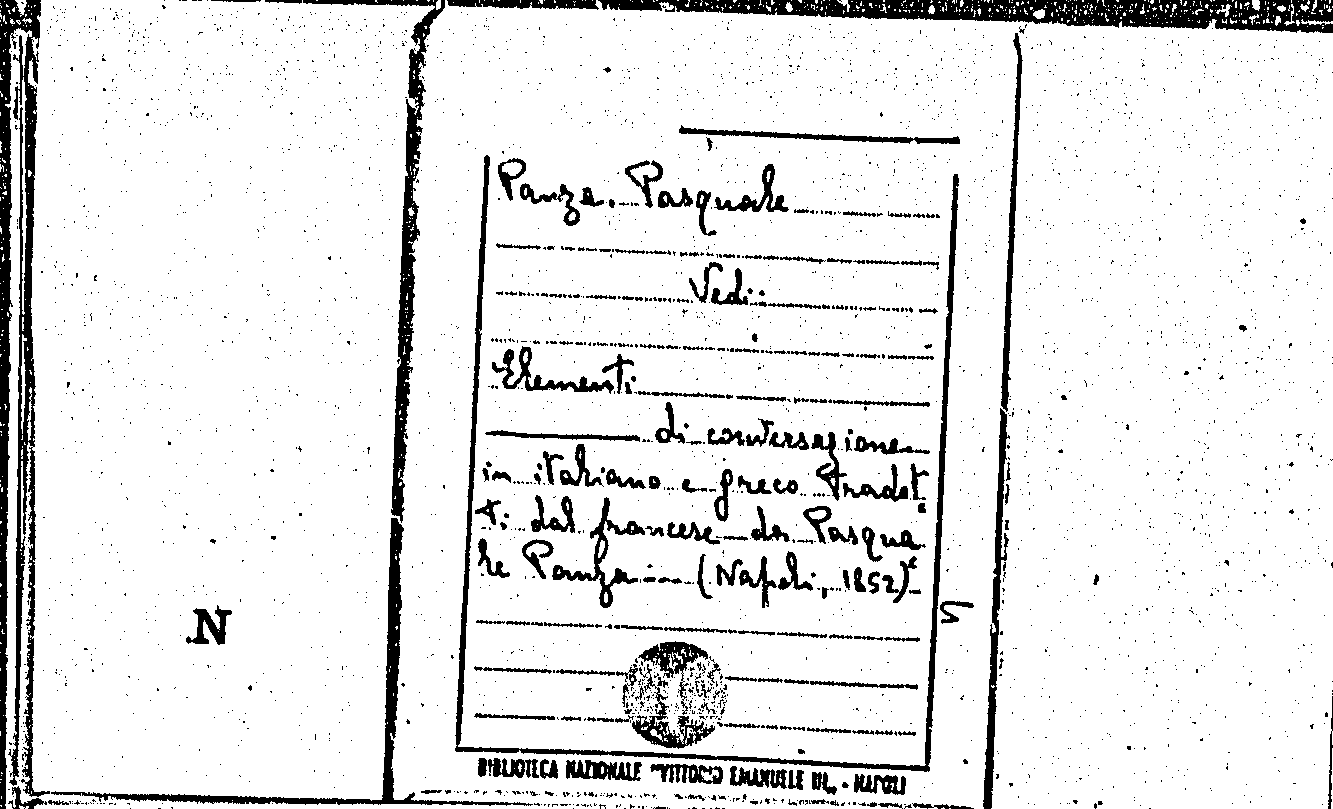 Panza. Pasquale
Vedi:
Elementi
di conversazione
in italiano e greco tradot
ti dal francese da Pasqua
le Panza ... (Napoli, 1852)
N
BIBLIOTECA NAZIONALE "VITTORIO EMANUELE III„ - NAPOLI